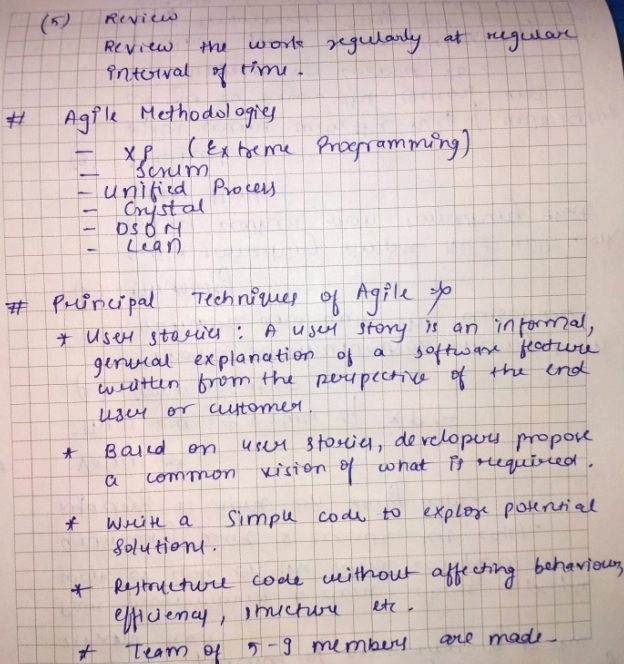 (5) Review
Review the work regularly at regular
interval of time.
# Agile Methodologies
- XP (Extreme Programming)
- Scrum
- Unified Process
- Crystal
- DSDM
- Lean
# Principal Techniques of Agile
* User stories : A user story is an informal,
general explanation of a software feature
written from the perspective of the end
user or customer.
* Based on user stories, developers propose
a common vision of what is required.
* Write a simple code to explore potential
solutions.
* Restructure code without affecting behaviour,
efficiency, structure etc.
* Team of 5-9 members are made.